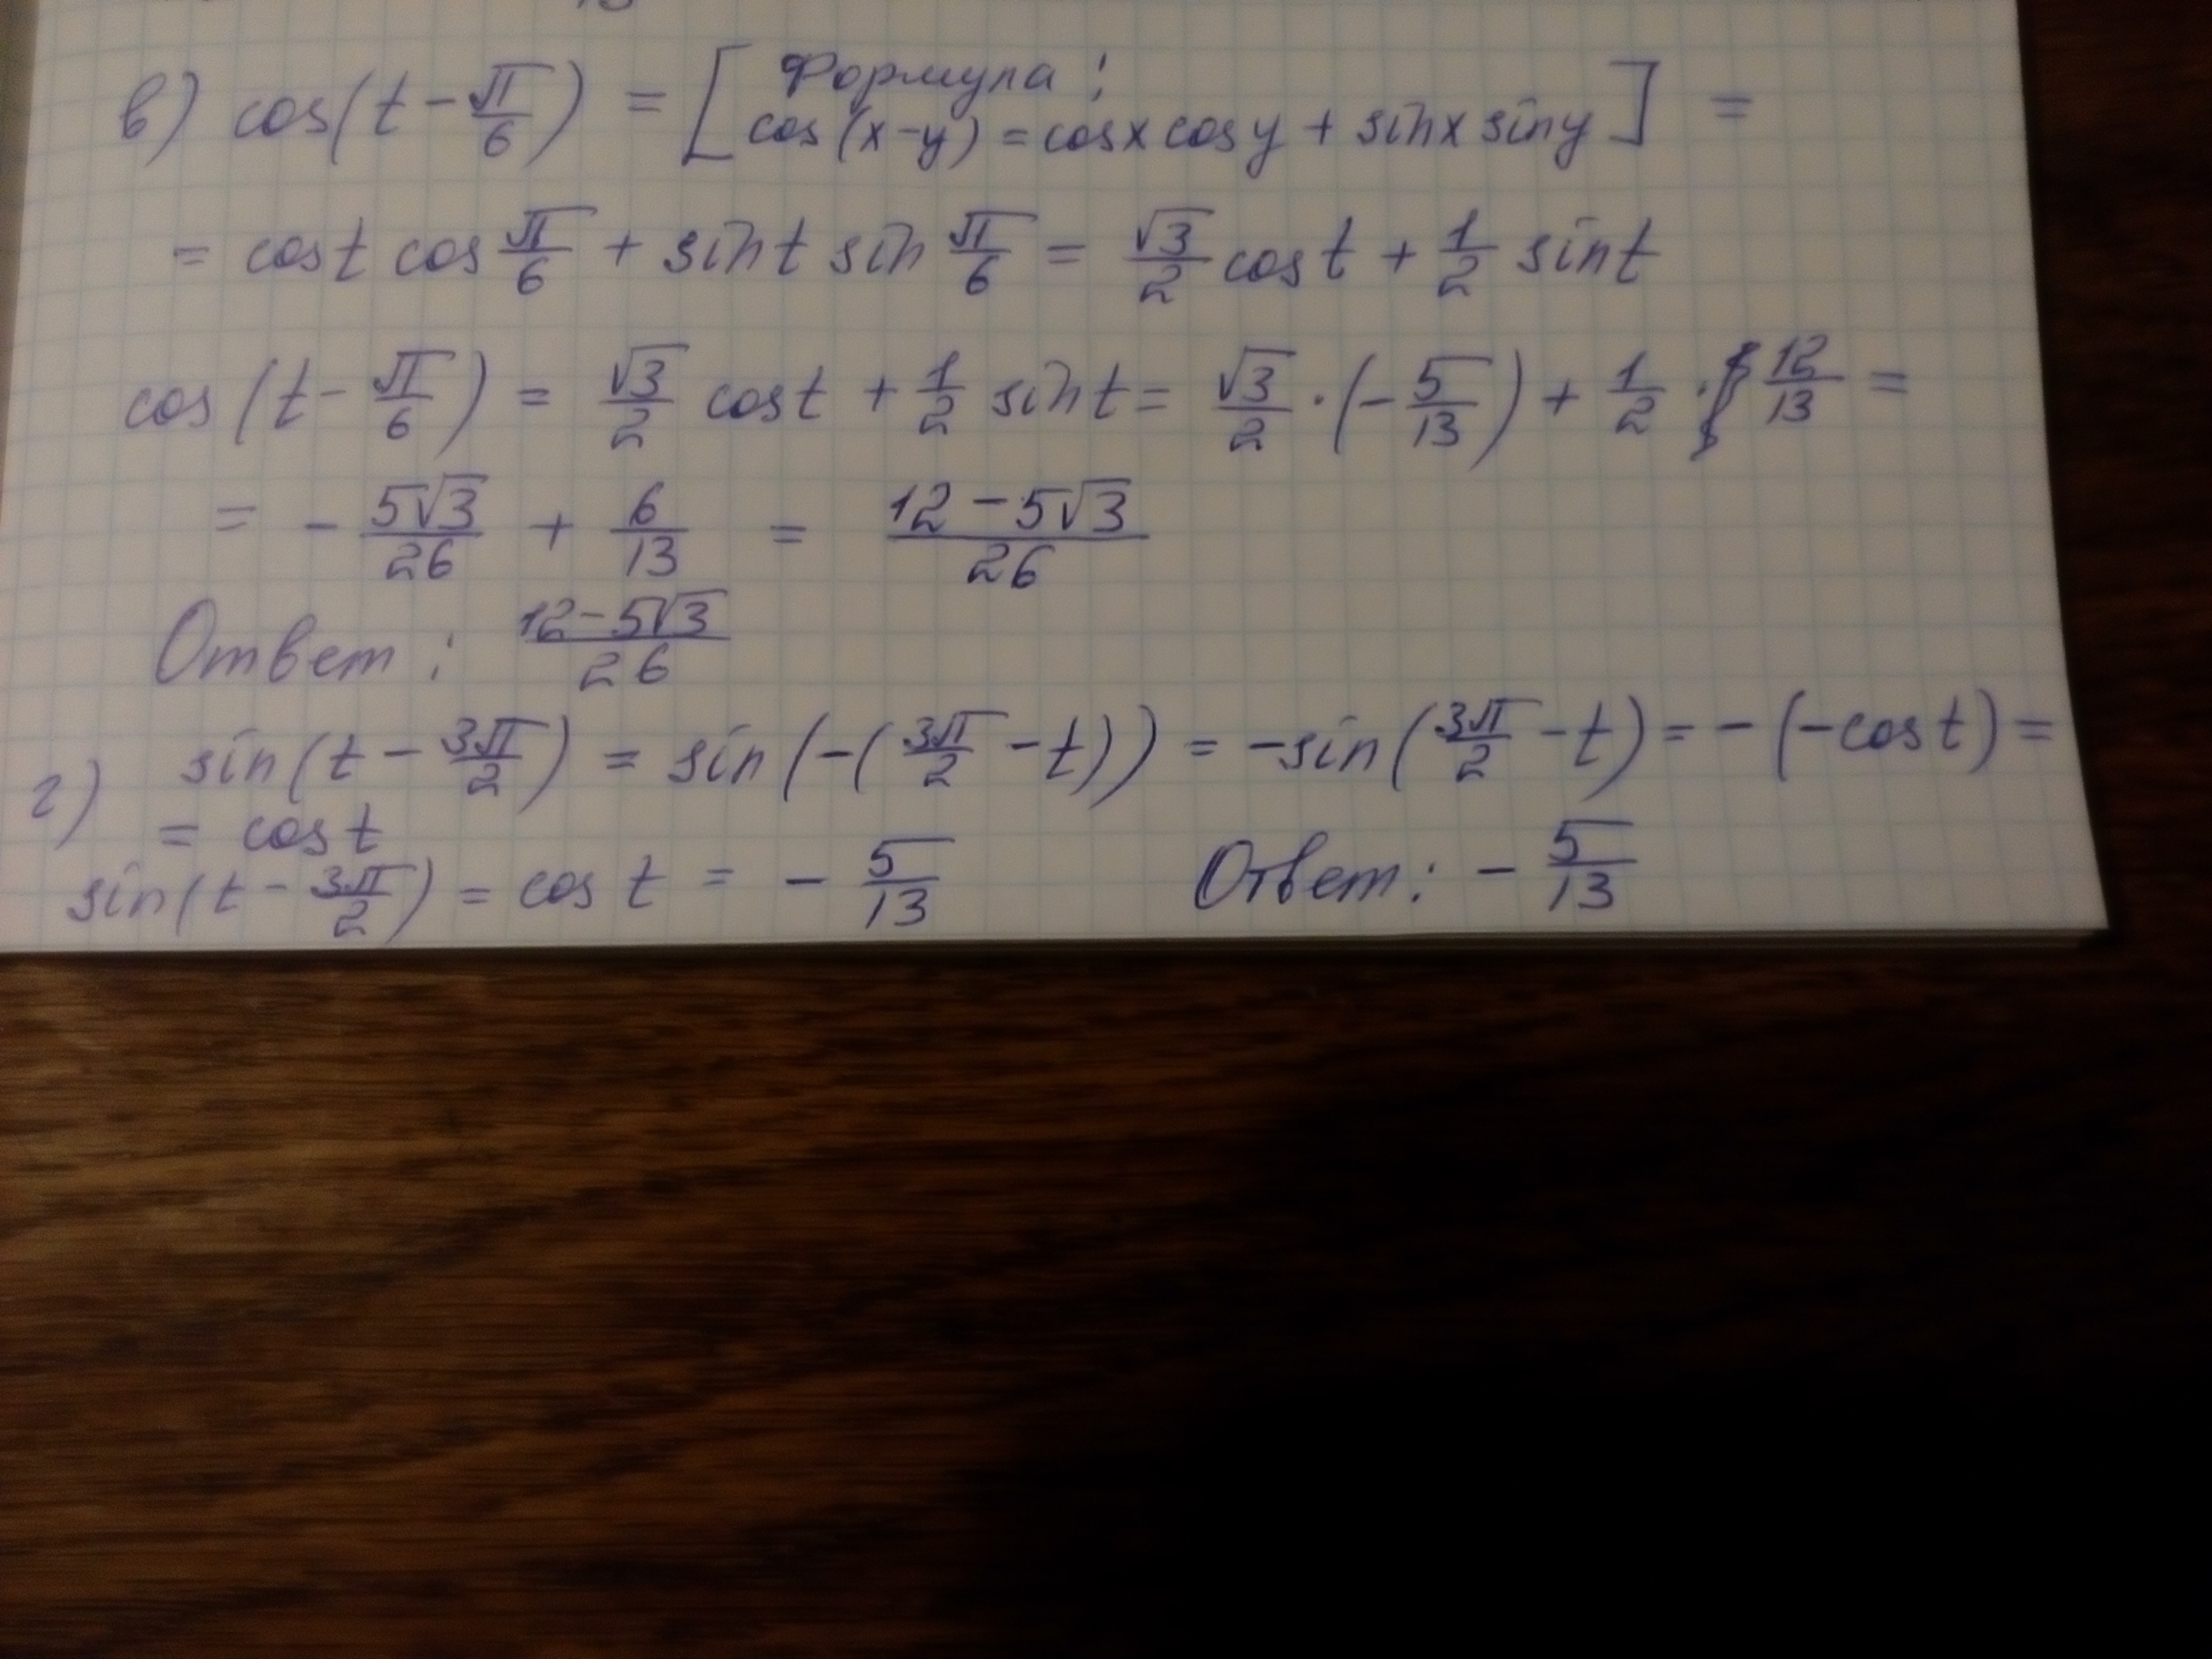 в) cos(t - π/6) = [ Формула: cos(x-y) = cosx cosy + sinx siny ] =
= cost cos π/6 + sint sin π/6 = √3/2 cost + 1/2 sint
cos(t - π/6) = √3/2 cost + 1/2 sint = √3/2 · (- 5/13) + 1/2 · 12/13 =
= - 5√3/26 + 6/13 = (12 - 5√3)/26
Ответ: (12 - 5√3)/26
г) sin(t - 3π/2) = sin(-(3π/2 - t)) = -sin(3π/2 - t) = -(-cost) =
= cost
sin(t - 3π/2) = cos t = - 5/13 Ответ: - 5/13